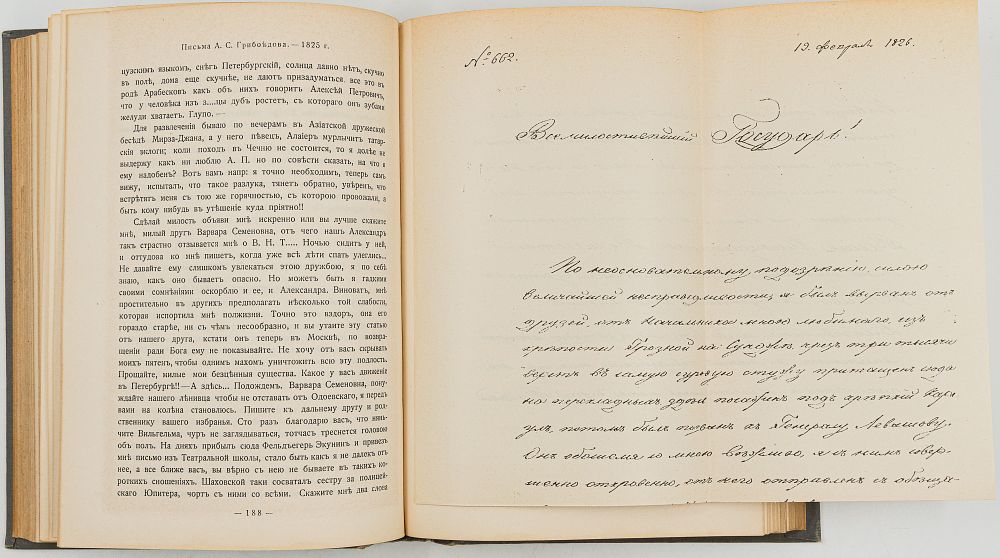 Письма А. С. Грибоѣдова. — 1825 г.
цузскимъ языкомъ, снѣгъ Петербургскій, солнца давно нѣтъ, скучно
въ полѣ, дома еще скучнѣе, не даютъ призадуматься. все это въ
родѣ Арабесковъ какъ объ нихъ говоритъ Алексѣй Петровичъ,
что у человѣка изъ з....цы дубъ ростетъ, съ котораго онъ зубами
желуди хватаетъ. Глупо. —
Для развлеченія бываю по вечерамъ въ Азіатской дружеской
бесѣдѣ Мирза-Джана, а у него пѣвецъ, Алаіеръ мурлычитъ татар-
скія эклоги; коли походъ въ Чечню не состоится, то я долѣе не
выдержу какъ ни люблю А. П. но по совѣсти сказать, на что я
ему надобенъ? Вотъ вамъ напр: я точно необходимъ, теперь самъ
вижу, испыталъ, что такое разлука, тянетъ обратно, увѣренъ, что
встрѣтятъ меня съ тою же горячностью, съ которою провожали, а
быть кому нибудь въ утѣшеніе куда пріятно!!
Сдѣлай милость объяви мнѣ искренно или вы лучше скажите
мнѣ, милый другъ Варвара Семеновна, отъ чего нашъ Александръ
такъ страстно отзывается мнѣ о В. Н. Т..... Ночью сидитъ у ней,
и оттудова ко мнѣ пишетъ, когда уже всѣ дѣти спать улеглись..
Не давайте ему слишкомъ увлекаться этою дружбою, я по себѣ
знаю, какъ оно бываетъ опасно. Но можетъ быть я гадкими
своими сомнѣніями оскорблю и ее, и Александра. Виноватъ, мнѣ
простительно въ другихъ предполагать нѣсколько той слабости,
которая испортила мнѣ полжизни. Точно это вздоръ, она его
гораздо старѣе, ни съ чѣмъ несообразно, и вы утаите эту статью
отъ нашего друга, кстати онъ теперь въ Москвѣ, по возвра-
щеніи ради Бога ему не показывайте. Не хочу отъ васъ скрывать
моихъ пятенъ, чтобы однимъ махомъ уничтожить всю эту подлость.
Прощайте, милые мои безцѣнныя существа. Какое у васъ движеніе
въ Петербургѣ!! — А здѣсь... Подождемъ. Варвара Семеновна, пону-
ждайте нашего лѣнивца чтобы не отставать отъ Одоевскаго, я передъ
вами на колѣна становлюсь. Пишите къ дальнему другу и род-
ственнику вашего избранья. Сто разъ благодарю васъ, что нян-
чите Вильгельма, чуръ не заглядываться, тотчасъ треснется головою
объ полъ. На дняхъ прибылъ сюда Фельдъегерь Экунинъ и привезъ
мнѣ письмо изъ Театральной школы, стало быть какъ я не далекъ отъ
нее, а все ближе васъ, вы вѣрно съ нею не бываете въ такихъ ко-
роткихъ сношеніяхъ. Шаховской таки сосваталъ сестру за полицей-
скаго Юпитера, чортъ съ ними со всѣми. Скажите мнѣ два слова
— 188 —
№ 662.
19. февраля 1826.
Всемилостивѣйшій Государь!
По неосновательному подозрѣнію, силою
величайшей несправедливости, я былъ вырванъ отъ
друзей, отъ начальника мною любимаго, изъ
крѣпости Грозной на Сунжѣ, чрезъ три тысячи
верстъ въ самую суровую стужу притащенъ сюда
на перекладныхъ, здѣсь посаженъ подъ крѣпкій кара-
улъ, потомъ былъ позванъ къ Генералу Левашову.
Онъ обошелся со мною вѣжливо, я съ нимъ совер-
шенно откровенно, отъ него отправленъ съ обѣща-